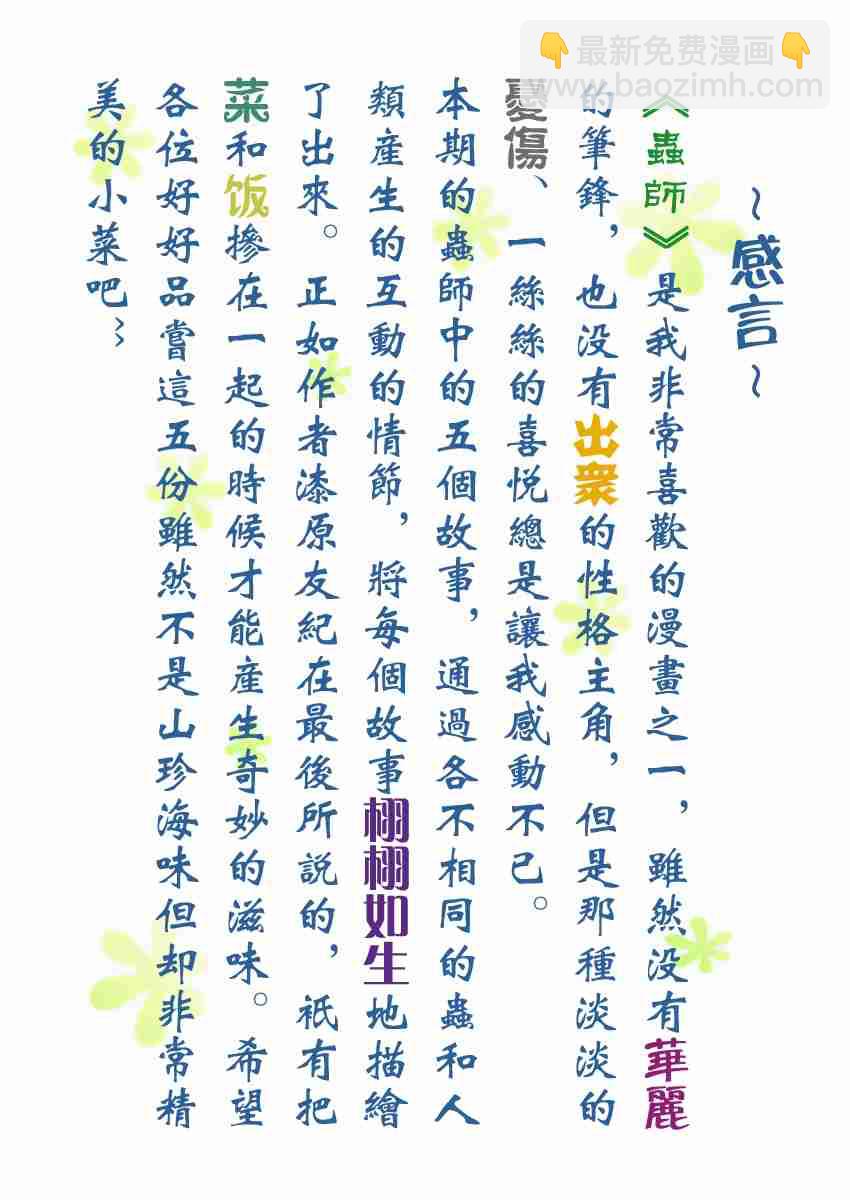 👇最新免费漫画👇
www.baozimh.com
~感言~
《蟲師》是我非常喜歡的漫畫之一，雖然没有華麗
的筆鋒，也没有出衆的性格主角，但是那種淡淡的
憂傷、一絲絲的喜悦總是讓我感動不已。
本期的蟲師中的五個故事，通過各不相同的蟲和人
類産生的互動的情節，將每個故事栩栩如生地描繪
了出來。正如作者漆原友紀在最後所説的，祇有把
菜和饭摻在一起的時候才能産生奇妙的滋味。希望
各位好好品嘗這五份雖然不是山珍海味但却非常精
美的小菜吧~~